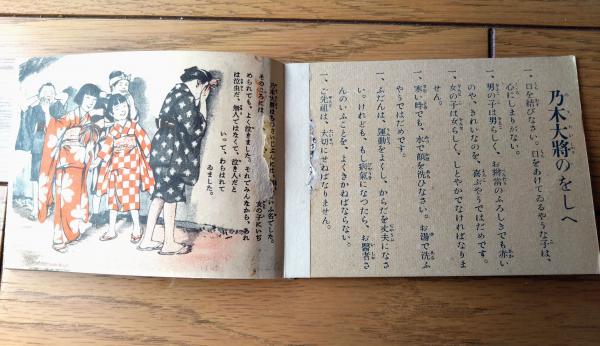 乃木大將のをしへ
一、口を結びなさい。口をあけてゐるやうな子は、
心にしまりがない。
一、男の子は男らしく、お辨當のふろしきでも赤い
のや、きれいなのを、喜ぶやうではだめです。
一、女の子は女らしく、しとやかでなければなりま
せん。
一、寒い時でも、水で顔を洗ひなさい。お湯で洗ふ
やうではだめです。
一、ふだんは、運動をよくし、からだを丈夫になさ
い。けれども、もし病氣になつたら、お醫者さ
んのいふことを、よくきかねばならない。
一、ご先祖は、大切にせねばなりません。
乃木大將はちひさいじぶんは、無人といふ名でした。
そのころには、女の子にいぢ
められても、よく泣きました。それでみんなから、あれ
は泣虫だ、無人ではなくて、泣き人だと
いつて、わらはれて
ゐました。